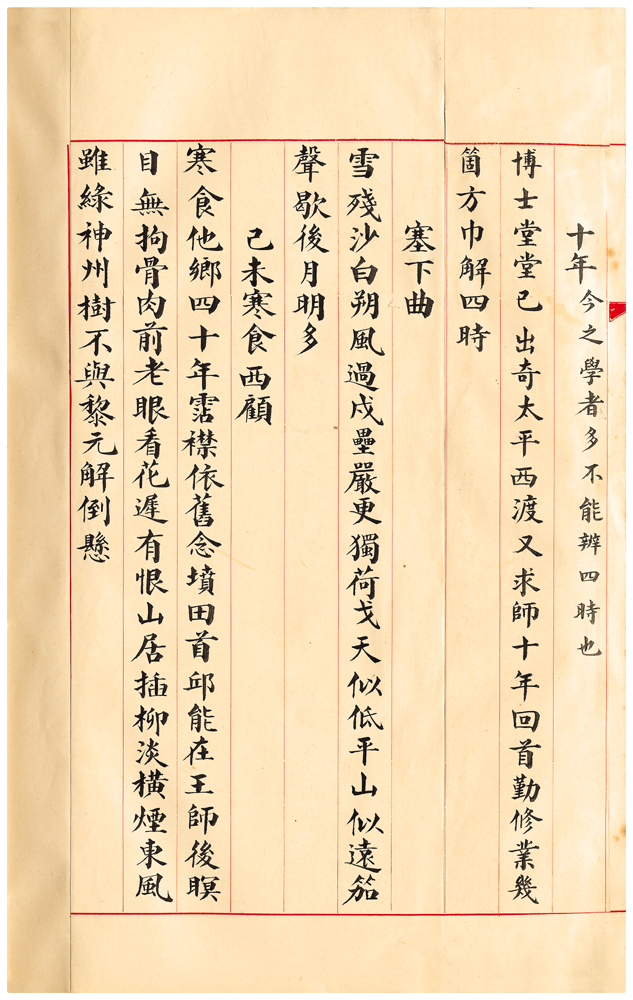 十年今之學者多不能辨四時也
博士堂堂已出奇太平西渡又求師十年回首勤修業幾
箇方巾解四時
塞下曲
雪殘沙白朔風過戍壘嚴更獨荷戈天似低平山似遠笳
聲歇後月明多
己未寒食西顧
寒食他鄉四十年霑襟依舊念墳田首邱能在王師後瞑
目無拘骨肉前老眼看花遲有恨山居插柳淡橫煙東風
雖綠神州樹不與黎元解倒懸